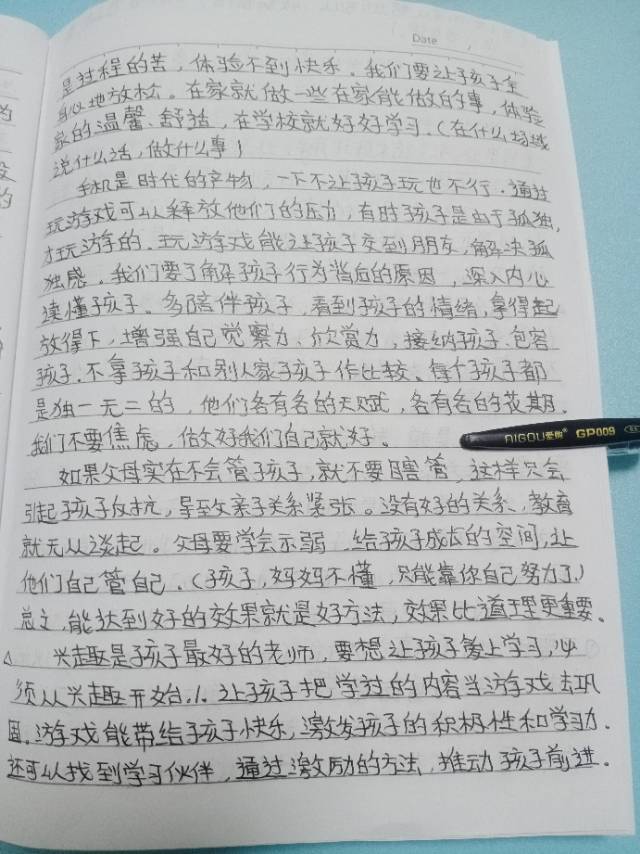 Date
是过程的苦，体验不到快乐。我们要让孩子全
身心地放松。在家就做一些在家能做的事，体验
家的温馨、舒适，在学校就好好学习。(在什么场域
说什么话，做什么事)
手机是时代的产物，一下不让孩子玩也不行。通过
玩游戏可以释放他们的压力，有时孩子是由于孤独，
才玩游的。玩游戏能让孩子交到朋友，解决孤
独感。我们要了解孩子行为背后的原因，深入内心
读懂孩子。多陪伴孩子，看到孩子的情绪，拿得起
放得下，增强自己觉察力、欣赏力，接纳孩子、包容
孩子，不拿孩子和别人家孩子作比较。每个孩子都
是独一无二的，他们各有各的天赋，各有各的花期。
我们不要焦虑，做好我们自己就好。
AIGOU爱购® GP009
如果父母实在不会管孩子，就不要瞎管，这样只会
引起孩子反抗，导致父亲子关系紧张。没有好的关系，教育
就无从谈起。父母要学会示弱，给孩子成长的空间，让
他们自己管自己。(孩子，妈妈不懂，只能靠你自己努力了。)
总之，能达到好的效果就是好方法，效果比道理更重要。
兴趣是孩子最好的老师，要想让孩子爱上学习，必
须从兴趣开始。1. 让孩子把学过的内容当游戏去巩
固，游戏能带给孩子快乐，激发孩子的积极性和学习力。
还可以找到学习伙伴，通过激励的方法，推动孩子前进。